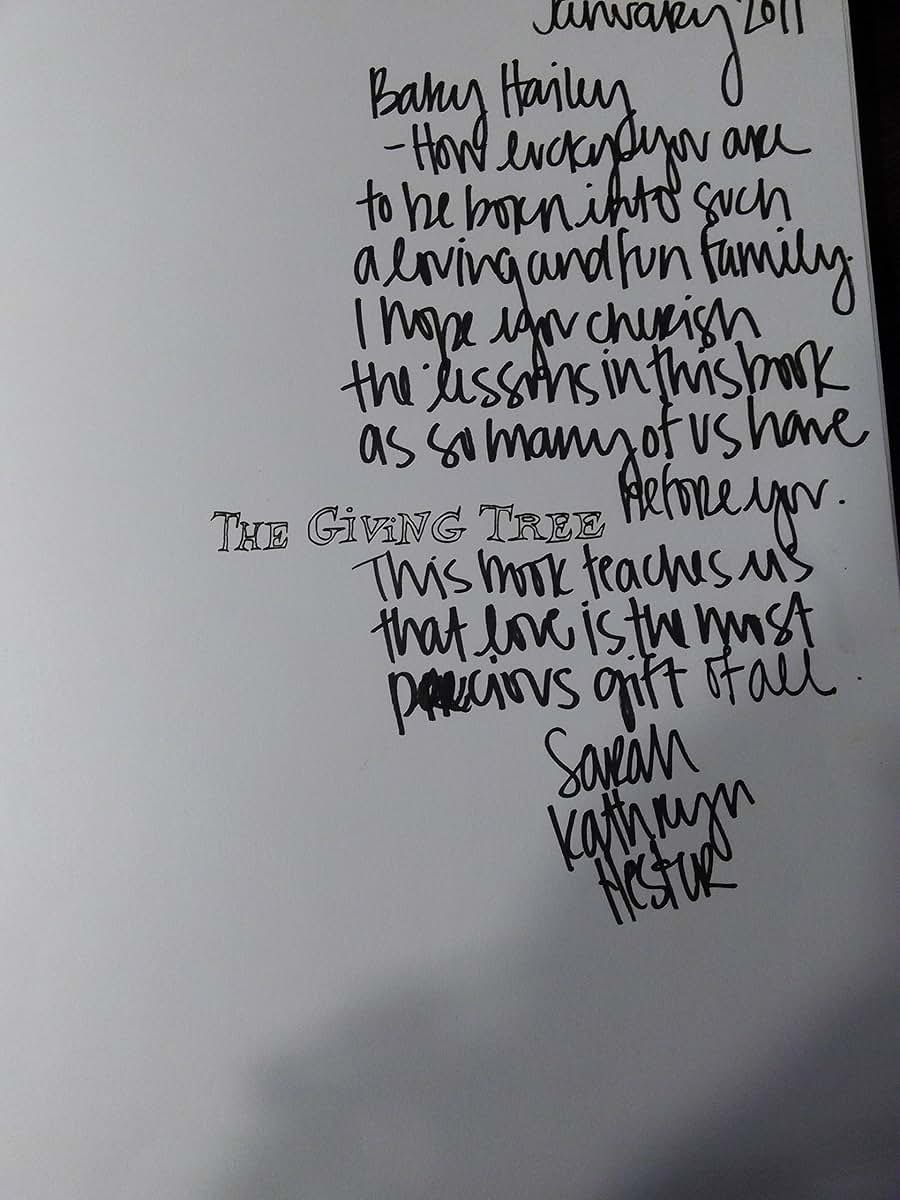 January 2011
Baby Hailey
- How lucky you are
to be born into such
a loving and fun family.
I hope you cherish
the lessons in this book
as so many of us have
before you.
THE GiViNG TREE
This book teaches us
that love is the most
precious gift of all.
Sarah
Kathryn
Hester